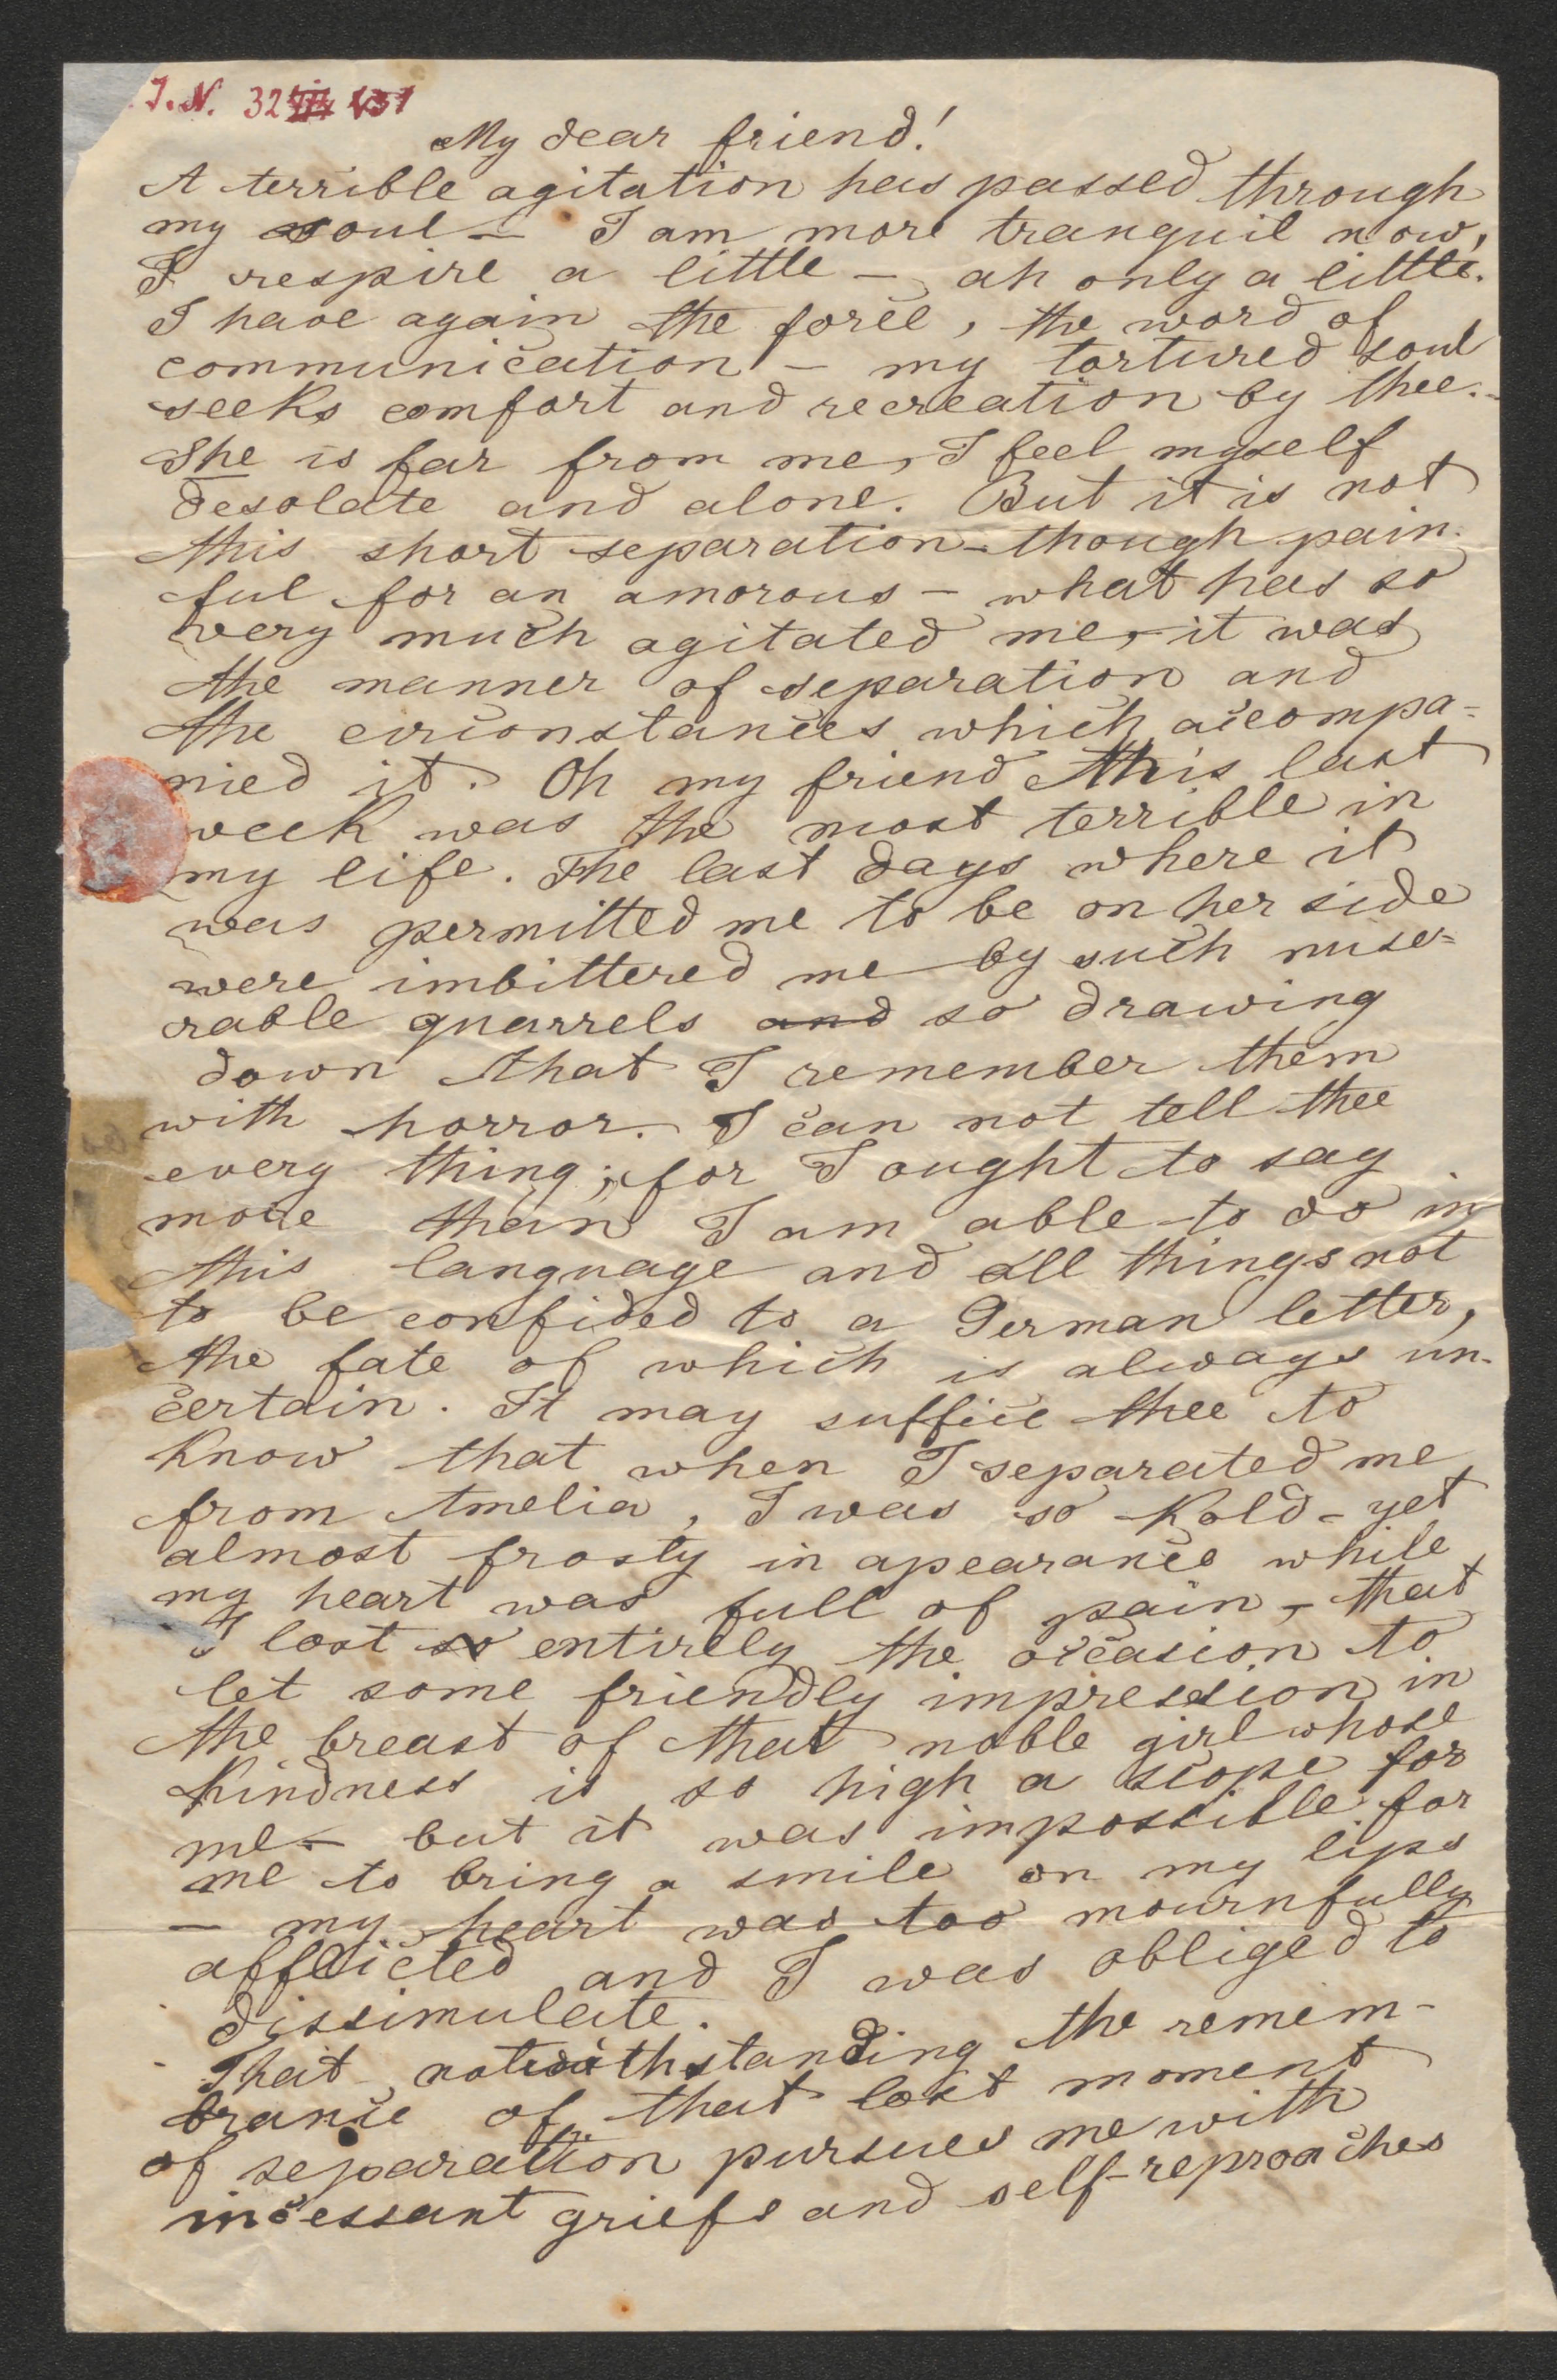 J. N. 32
My dear friend!
A terrible agitation has passed through
my soul – I am more tranquil now,
I respire a little – ah only a little.
I have again the force, the word of
communication – my tortured soul
seeks comfort and recreation by thee.
She is far from me, I feel myself
desolate and alone. But it is not
this short separation – though pain-
ful for an amorous – what has so
very much agitated me, it was
the manner of separation and
the circonstances which accompa=
nied it. Oh my friend this last
week was the most terrible in
my life. The last days where it
was permitted me to be on her side
were imbittered me by such mise=
rable quarrels and so drawing
down that I remember them
with horror. I can not tell thee
every thing; for I ought to say
more than I am able to do in
this language and all things not
to be confided to a German letter,
the fate of which is always un-
certain. It may suffice thee to
know that when I separated me
from Amelia, I was so kold – yet
almost frosty in apearance while
my heart was full of pain, – that
I lost so entirely the occasion to
let some friendly impression in
the breast of that noble girl whose
kindness is so high a scope for
me – but it was impossible for
me to bring a smile on my lips
– my heart was too mournfully
afflicted and I was obliged to
dissimulate.
That notwithstanding the remem-
brance of that last moment
of separation pursues me with
incessant griefs and self-reproaches